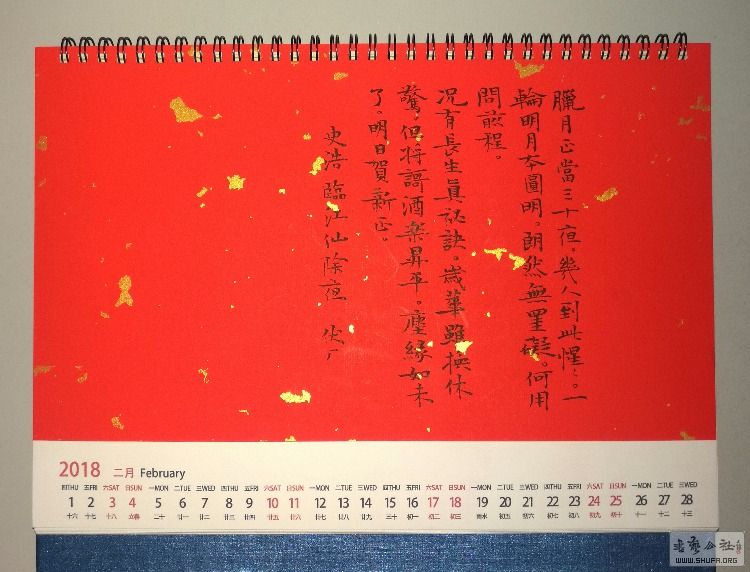 臘月正當三十夜。幾人到此惺〻。一
輪明月本圓明。朗然無罣礙。何用
問前程。
況有長生眞祕訣。歲華雖換休
驚。但將謌酒樂昇平。塵緣如未
了。明日賀新正。
史浩 臨江仙 除夜 伏厂
2018 二月 February
四THU 五FRI 六SAT 日SUN 一MON 二TUE 三WED 四THU 五FRI 六SAT 日SUN 一MON 二TUE 三WED 四THU 五FRI 六SAT 日SUN 一MON 二TUE 三WED 四THU 五FRI 六SAT 日SUN 一MON 二TUE 三WED
1 2 3 4 5 6 7 8 9 10 11 12 13 14 15 16 17 18 19 20 21 22 23 24 25 26 27 28
十六 十七 十八 立春 二十 廿一 廿二 廿三 廿四 廿五 廿六 廿七 廿八 廿九 三十 初一 初二 初三 雨水 初五 初六 初七 初八 初九 初十 十一 十二 十三
書藝公社
WWW.SHUFA.ORG